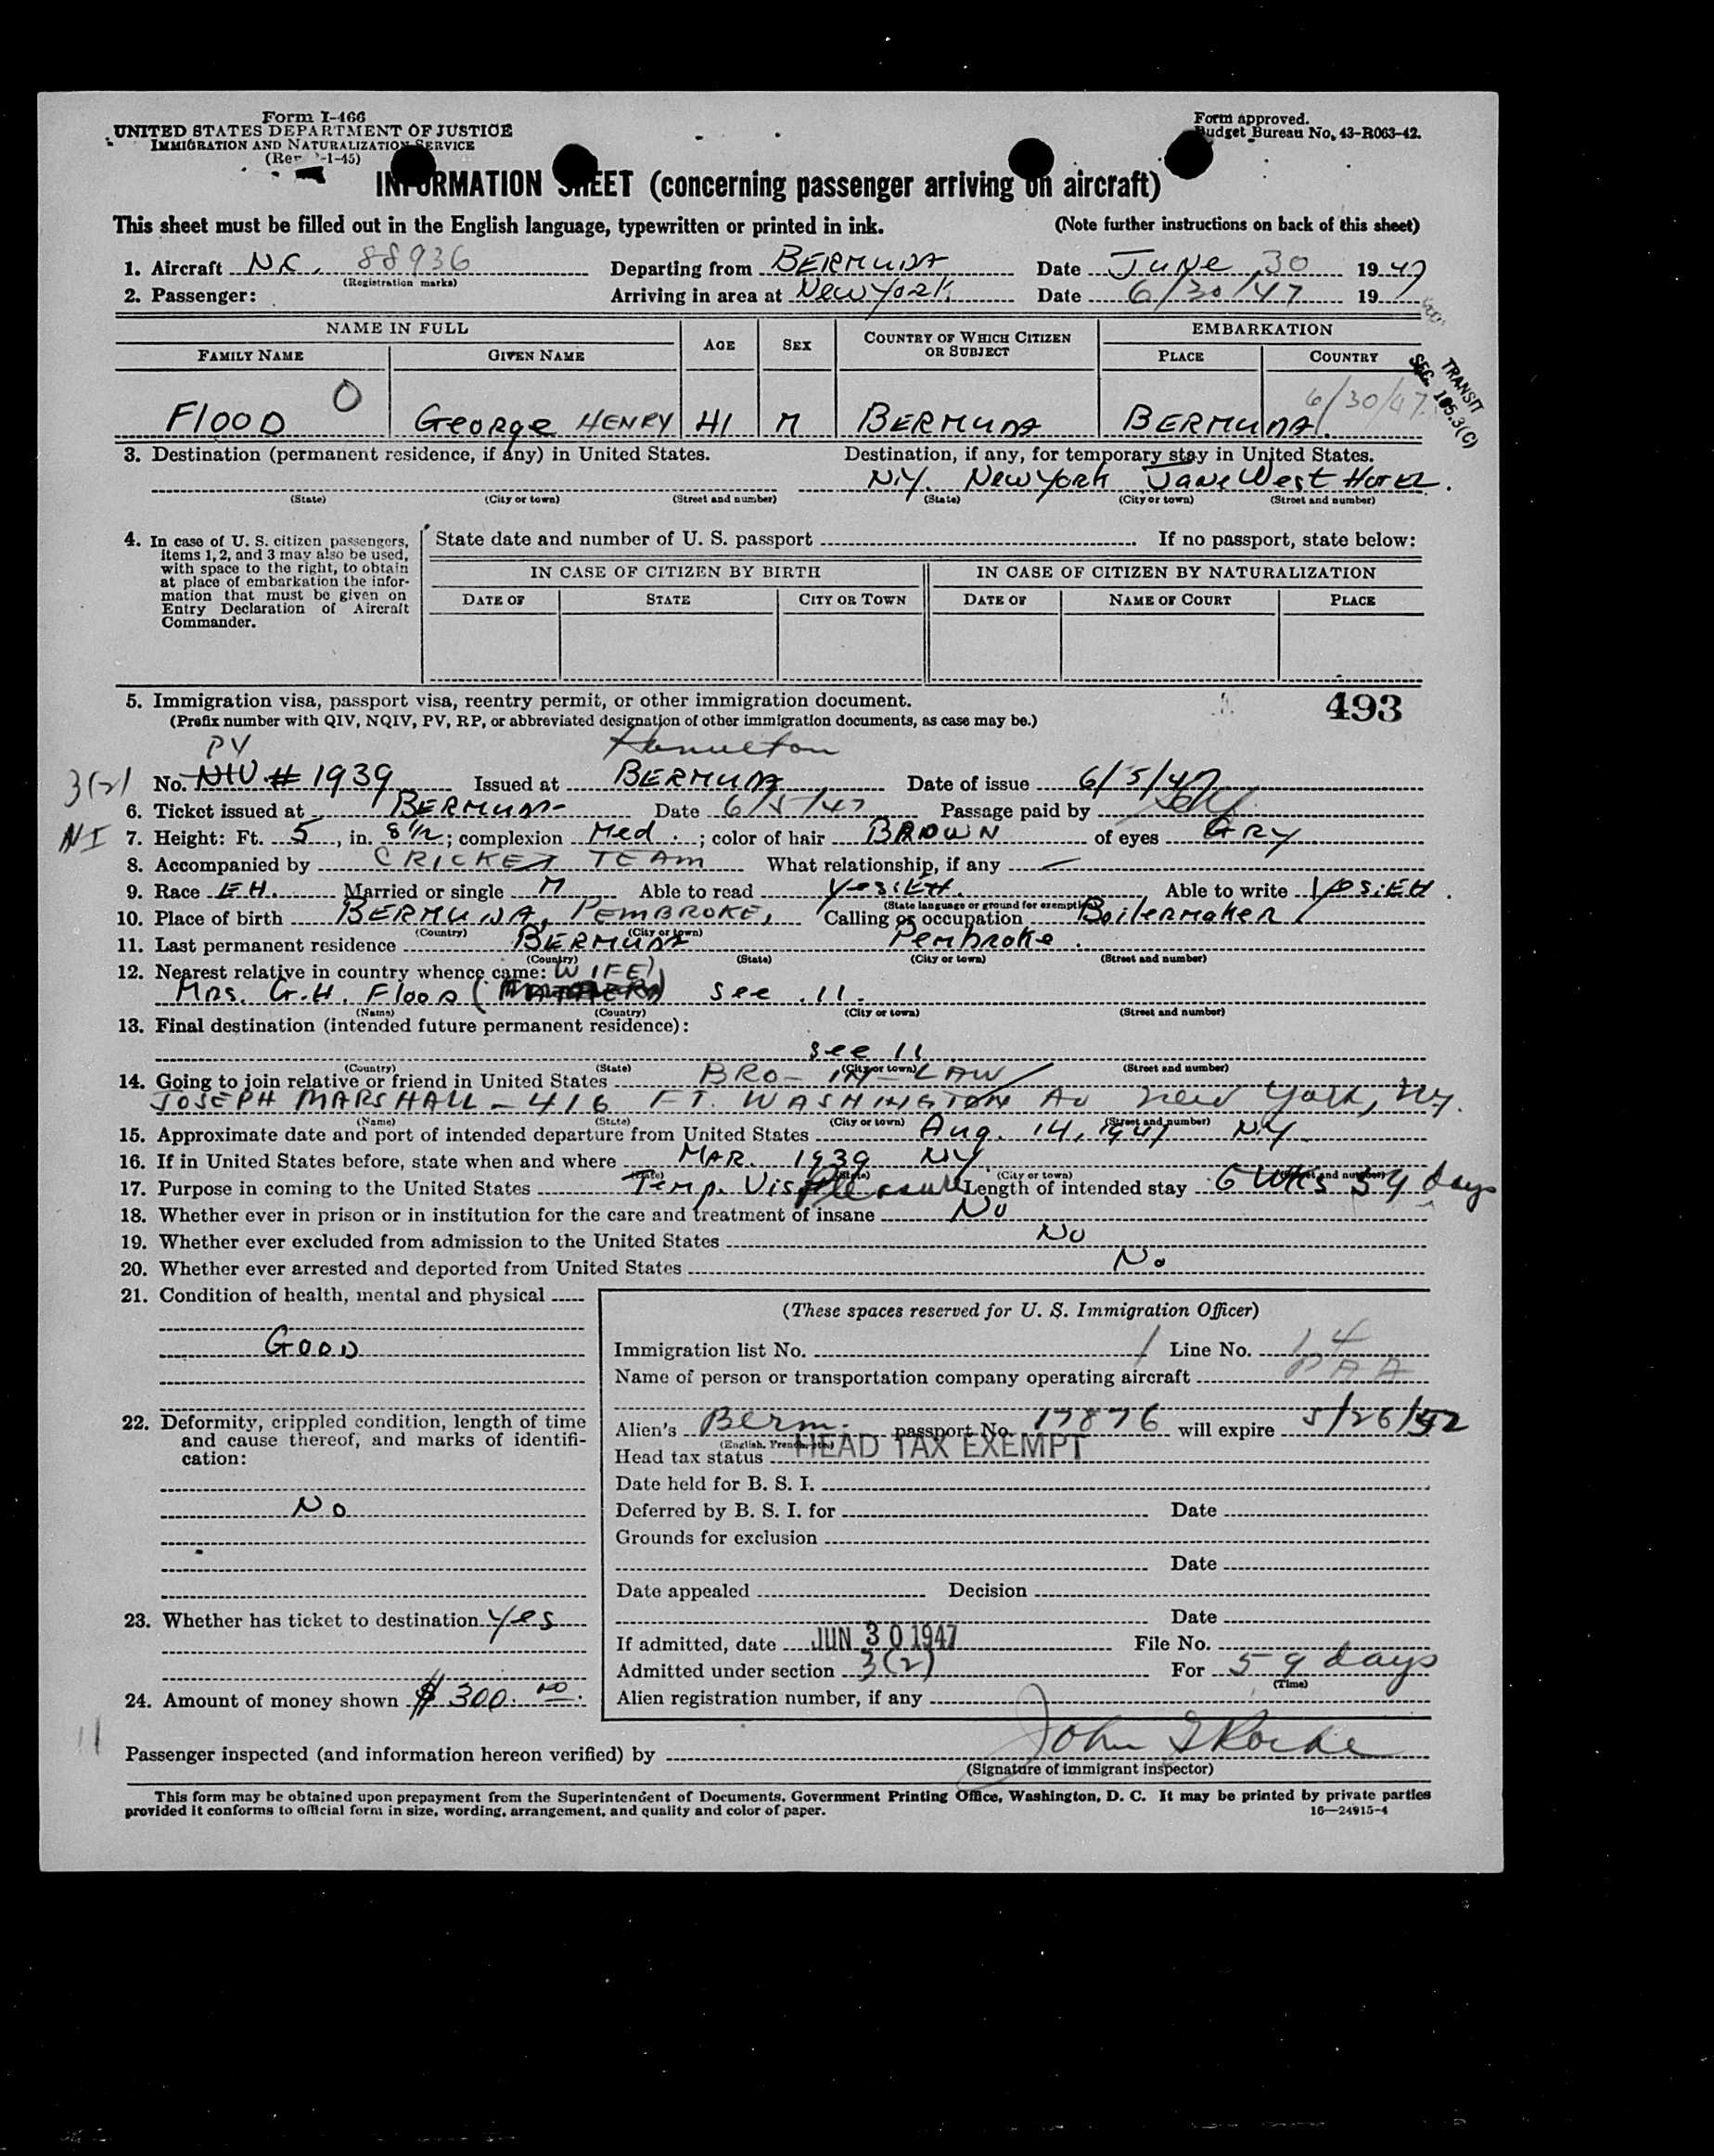 Form I-466
UNITED STATES DEPARTMENT OF JUSTICE
IMMIGRATION AND NATURALIZATION SERVICE
(Rev. -1-45)
Form approved.
Budget Bureau No. 43-R063-42.
INFORMATION SHEET (concerning passenger arriving on aircraft)
This sheet must be filled out in the English language, typewritten or printed in ink. (Note further instructions on back of this sheet)
1. Aircraft NC. 88936 Departing from BERMUDA Date JUNE 30 1947
(Registration marks)
2. Passenger: Arriving in area at New York Date 6/30/47 19
NAME IN FULL AGE SEX COUNTRY OF WHICH CITIZEN OR SUBJECT EMBARKATION
FAMILY NAME GIVEN NAME PLACE COUNTRY
TRANSIT
SEC. 105.3(C)
6/30/47
FlooD O George HENRY 41 M BERMUDA BERMUDA.
3. Destination (permanent residence, if any) in United States. Destination, if any, for temporary stay in United States.
N.Y. New York Jane West HOTEL.
(State) (City or town) (Street and number) (State) (City or town) (Street and number)
4. In case of U. S. citizen passengers,
items 1, 2, and 3 may also be used,
with space to the right, to obtain
at place of embarkation the infor-
mation that must be given on
Entry Declaration of Aircraft
Commander.
State date and number of U. S. passport If no passport, state below:
IN CASE OF CITIZEN BY BIRTH IN CASE OF CITIZEN BY NATURALIZATION
DATE OF STATE CITY OR TOWN DATE OF NAME OF COURT PLACE
5. Immigration visa, passport visa, reentry permit, or other immigration document. 493
(Prefix number with QIV, NQIV, PV, RP, or abbreviated designation of other immigration documents, as case may be.)
PV Hamilton
3(2) No. NIV # 1939 Issued at BERMUDA Date of issue 6/5/47
6. Ticket issued at BERMUDA Date 6/5/47 Passage paid by Self
NI 7. Height: Ft. 5, in. 8 1/2; complexion Med.; color of hair BROWN of eyes GRY
8. Accompanied by CRICKET TEAM What relationship, if any —
9. Race EH. Married or single M Able to read Yes: EH. Able to write Yes: EH.
(State language or ground for exemption)
10. Place of birth BERMUDA, PEMBROKE, Calling or occupation Boilermaker
(Country) (City or town)
11. Last permanent residence BERMUDA Pembroke.
(Country) (State) (City or town) (Street and number)
12. Nearest relative in country whence came: WIFE)
Mrs. G.H. Flood ( See 11.
(Name) (Country) (City or town) (Street and number)
13. Final destination (intended future permanent residence):
See 11
(Country) (State) (City or town) (Street and number)
14. Going to join relative or friend in United States BRO-IN-LAW
JOSEPH MARSHALL - 416 FT. WASHINGTON Av New York, N.Y.
(Name) (State) (City or town) (Street and number)
15. Approximate date and port of intended departure from United States Aug. 14, 1947 N.Y.
16. If in United States before, state when and where MAR. 1939 NY
(Date) (State) (City or town) (Street and number)
17. Purpose in coming to the United States Temp. Vis Pleasure Length of intended stay 6 WKs 59 days
18. Whether ever in prison or in institution for the care and treatment of insane No
19. Whether ever excluded from admission to the United States No
20. Whether ever arrested and deported from United States No
21. Condition of health, mental and physical
GOOD
22. Deformity, crippled condition, length of time
and cause thereof, and marks of identifi-
cation:
No
23. Whether has ticket to destination Yes
24. Amount of money shown $ 300.00.
(These spaces reserved for U. S. Immigration Officer)
Immigration list No. 1 Line No. 14
Name of person or transportation company operating aircraft PAA
Alien's Berm. passport No. 17876 will expire 5/26/52
(English, French, etc.)
Head tax status HEAD TAX EXEMPT
Date held for B. S. I.
Deferred by B. S. I. for Date
Grounds for exclusion
Date
Date appealed Decision
Date
If admitted, date JUN 30 1947 File No.
Admitted under section 3(2) For 59 days
(Time)
Alien registration number, if any
11
Passenger inspected (and information hereon verified) by John
(Signature of immigrant inspector)
This form may be obtained upon prepayment from the Superintendent of Documents, Government Printing Office, Washington, D. C. It may be printed by private parties
provided it conforms to official form in size, wording, arrangement, and quality and color of paper. 16—24915-4